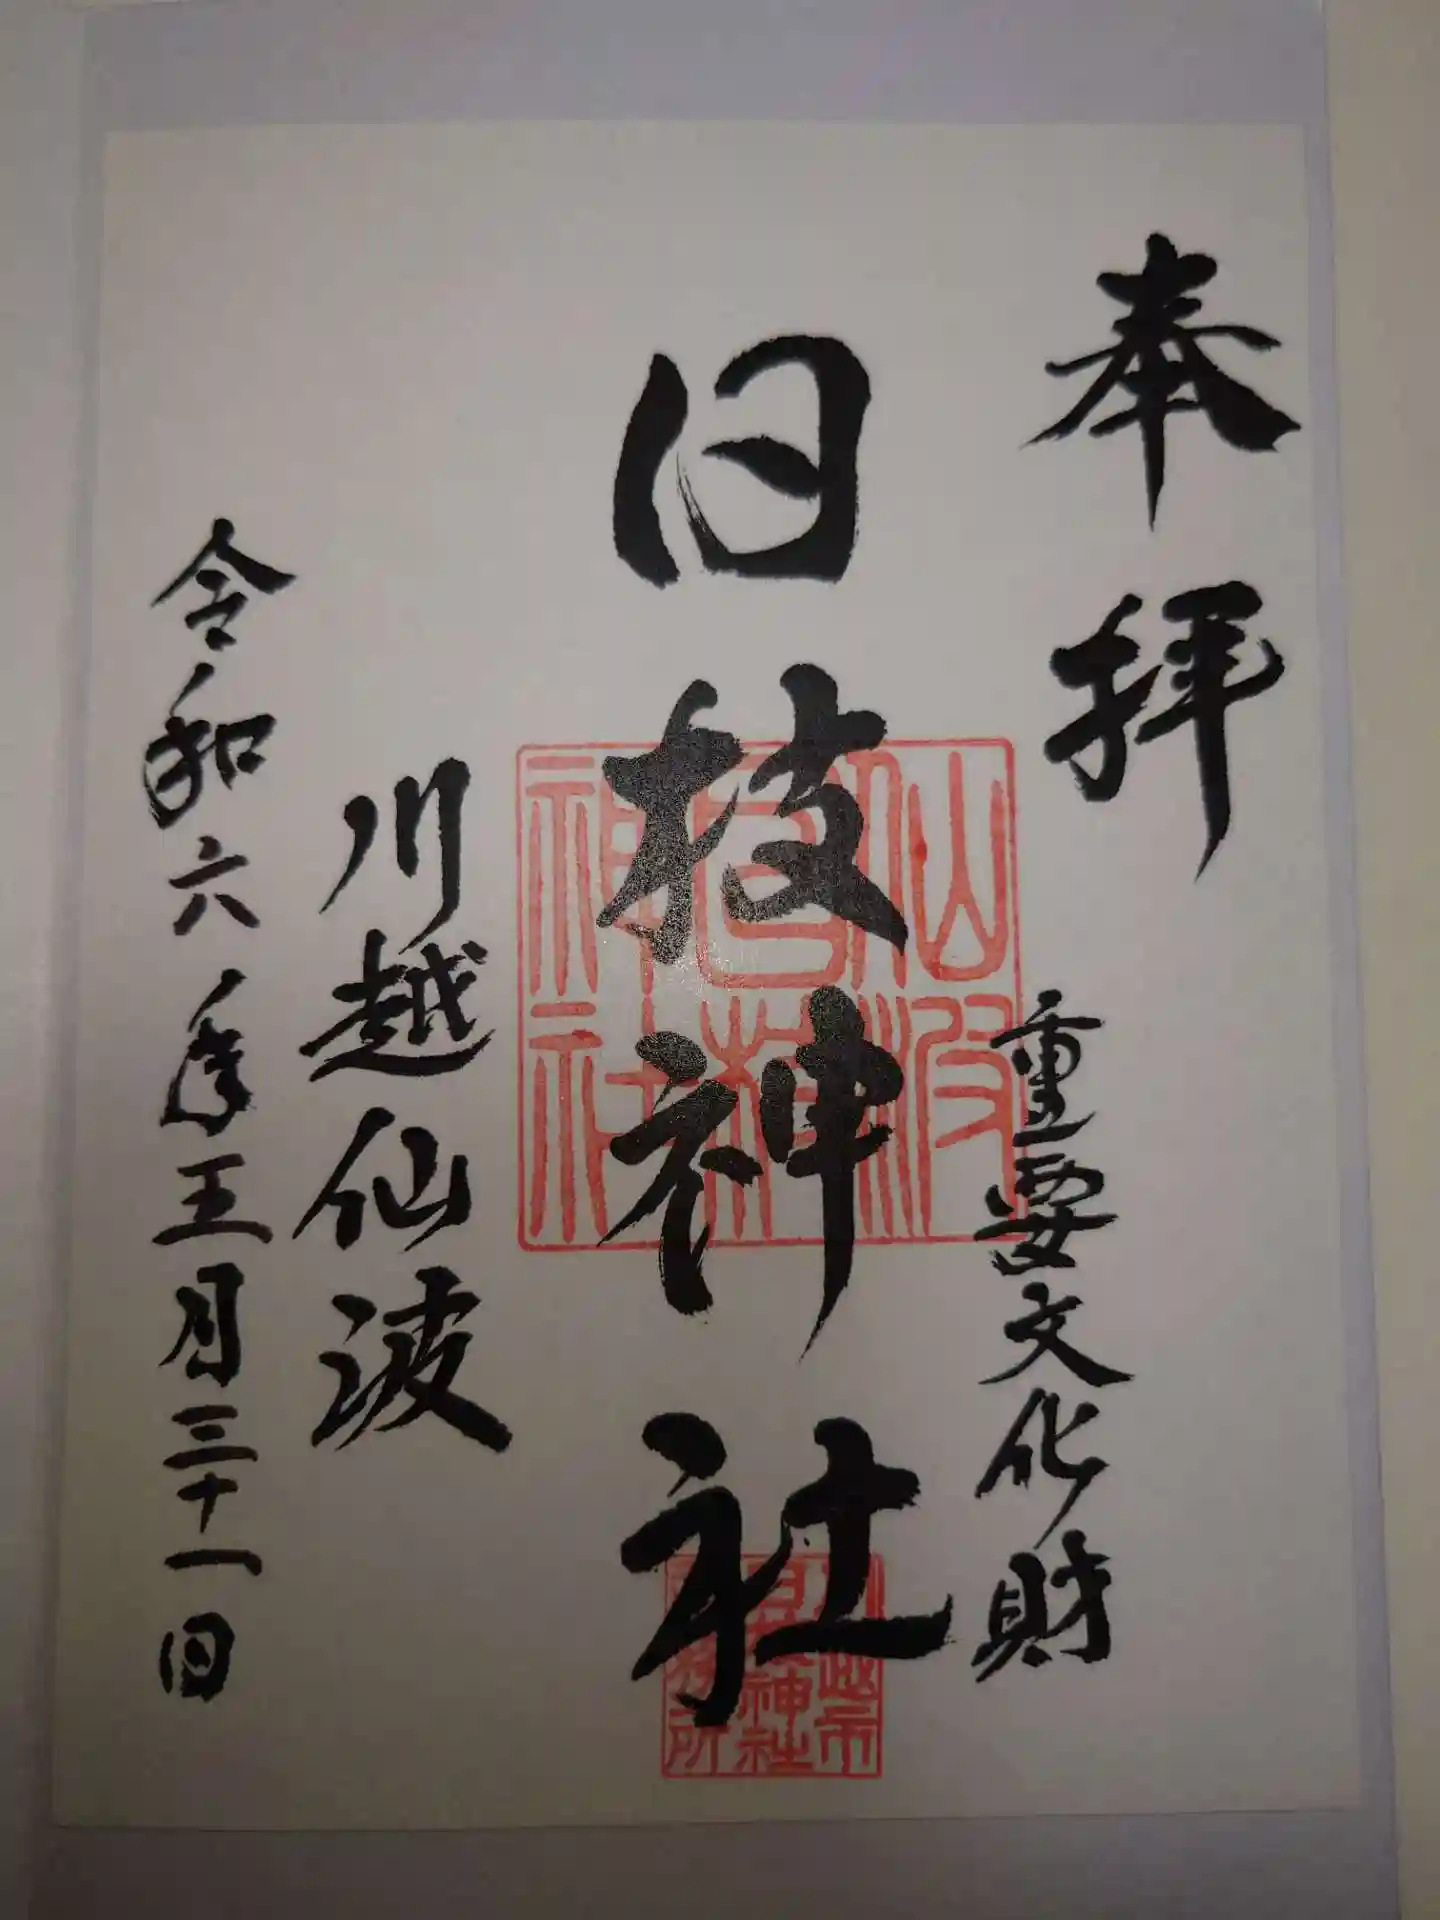 奉拝
重要文化財
日枝神社
仙波
日枝
神社
川越市
日枝神社
務所
川越仙波
令和六年五月三十一日